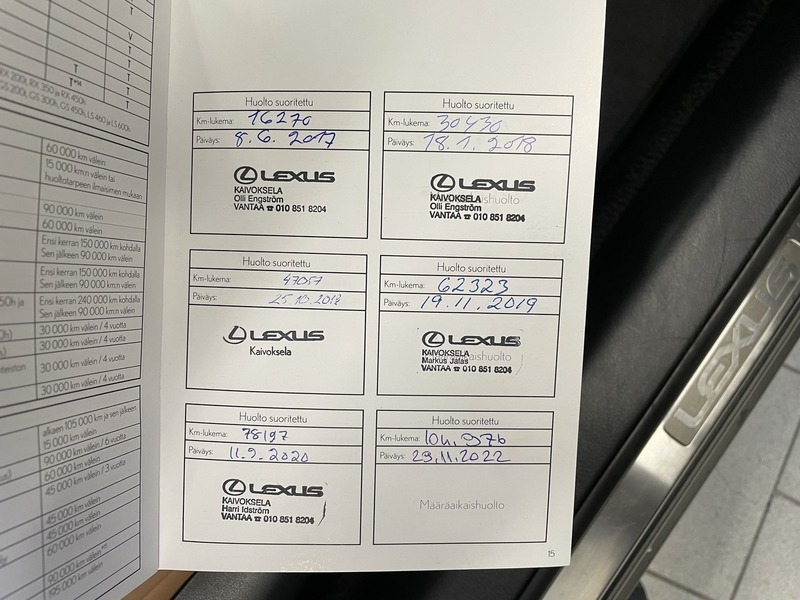 T
V
T
T
T
T*14
T
T
RX 200t, RX 350 ja RX 450h
GS 200t, GS 300h, GS 450h, LS 460 ja LS 600h
60 000 km välein
15 000 km:n välein tai
huoltotarpeen ilmaisimen mukaan
90 000 km välein
60 000 km välein
Ensi kerran 150 000 km kohdalla
Sen jälkeen 90 000 km välein
Ensi kerran 150 000 km kohdalla
Sen jälkeen 90 000 km:n välein
50h ja
Ensi kerran 240 000 km kohdalla
Sen jälkeen 90 000 km:n välein
30 000 km välein / 4 vuotta
30 000 km välein / 4 vuotta
30 000 km välein / 4 vuotta
30 000 km välein / 4 vuotta
alkaen 105 000 km ja sen jälkeen
15 000 km välein
90 000 km välein / 6 vuotta
60 000 km välein
45 000 km välein / 3 vuotta
45 000 km välein
45 000 km välein
60 000 km välein
90 000 km välein
195 000 km välein
Huolto suoritettu
Km-lukema: 16270
Päiväys: 8.6. 2017
LEXUS
KAIVOKSELA
Olli Engström
VANTAA ☎ 010 851 8204
Huolto suoritettu
Km-lukema: 30430
Päiväys: 18.1. 2018
LEXUS
KAIVOKSELA
Olli Engström
VANTAA ☎ 010 851 8204
Huolto suoritettu
Km-lukema: 47057
Päiväys: 25.10.2018
LEXUS
Kaivoksela
Huolto suoritettu
Km-lukema: 62323
Päiväys: 19.11.2019
LEXUS
KAIVOKSELA
Markus Jalas
VANTAA ☎ 010 851 8204
Huolto suoritettu
Km-lukema: 78197
Päiväys: 11.9.2020
LEXUS
KAIVOKSELA
Harri Idström
VANTAA ☎ 010 851 8204
Huolto suoritettu
Km-lukema: 104.976
Päiväys: 29.11.2022
Määräaikaishuolto
15
LEXUS